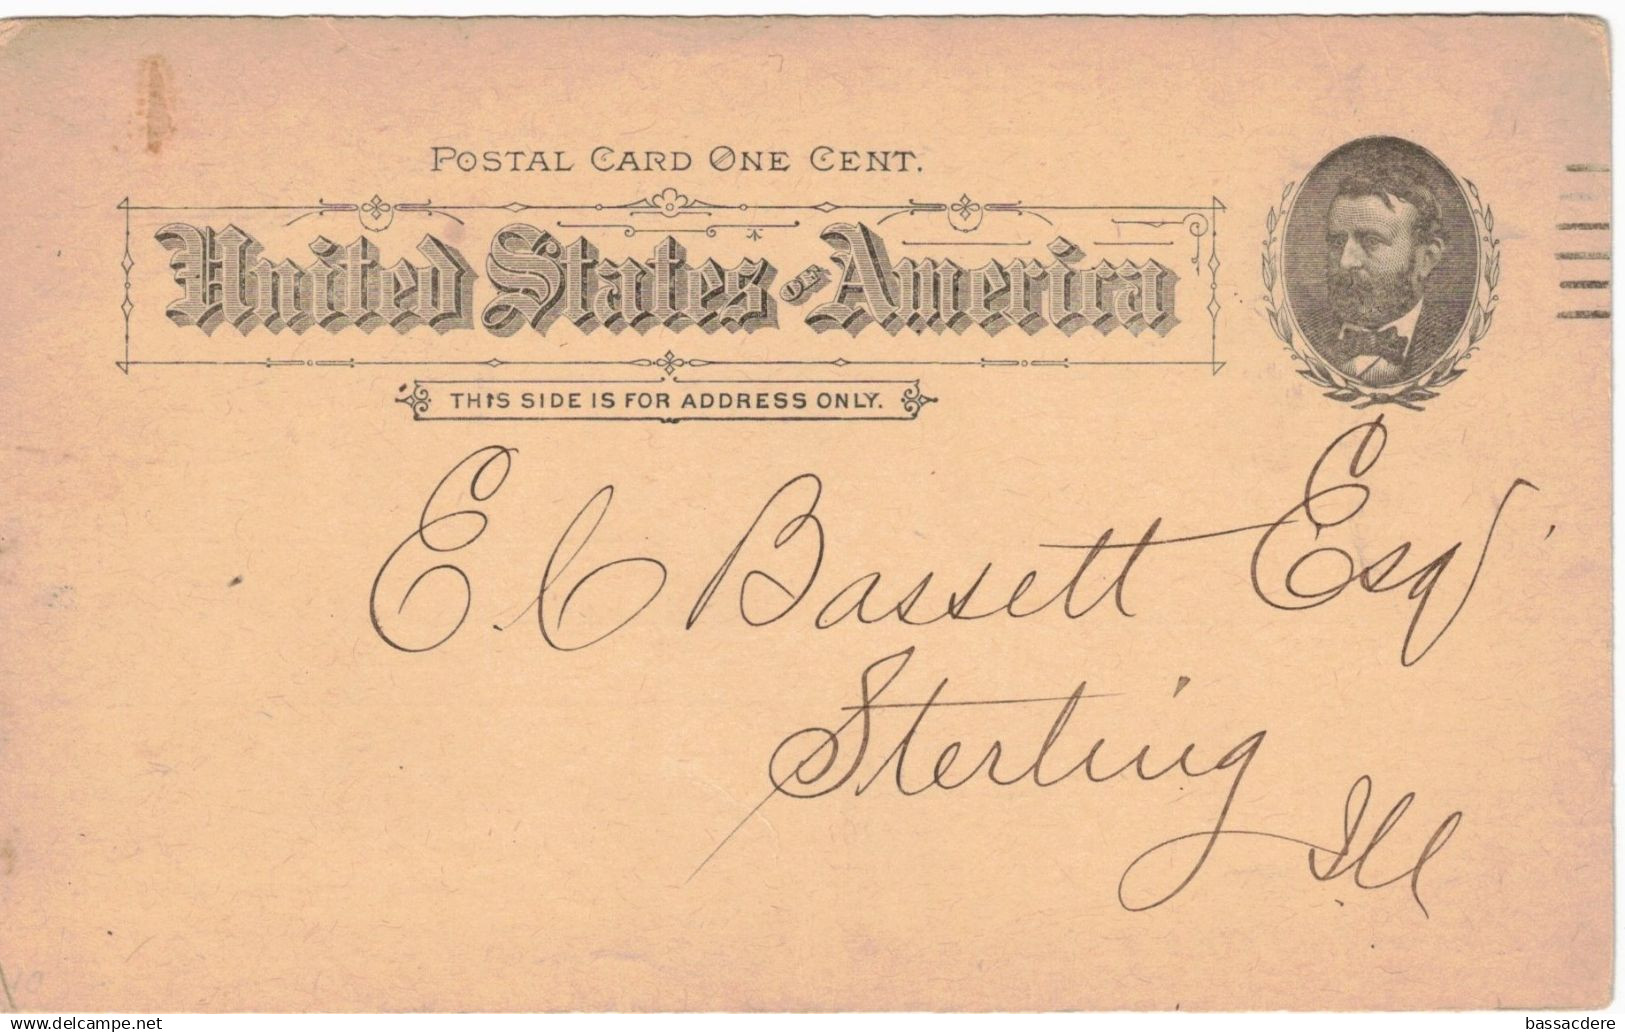 POSTAL CARD ONE CENT.
United States OF America
THIS SIDE IS FOR ADDRESS ONLY.
E C Bassett Esq
Sterling
Ill
www.delcampe.net
bassacdere